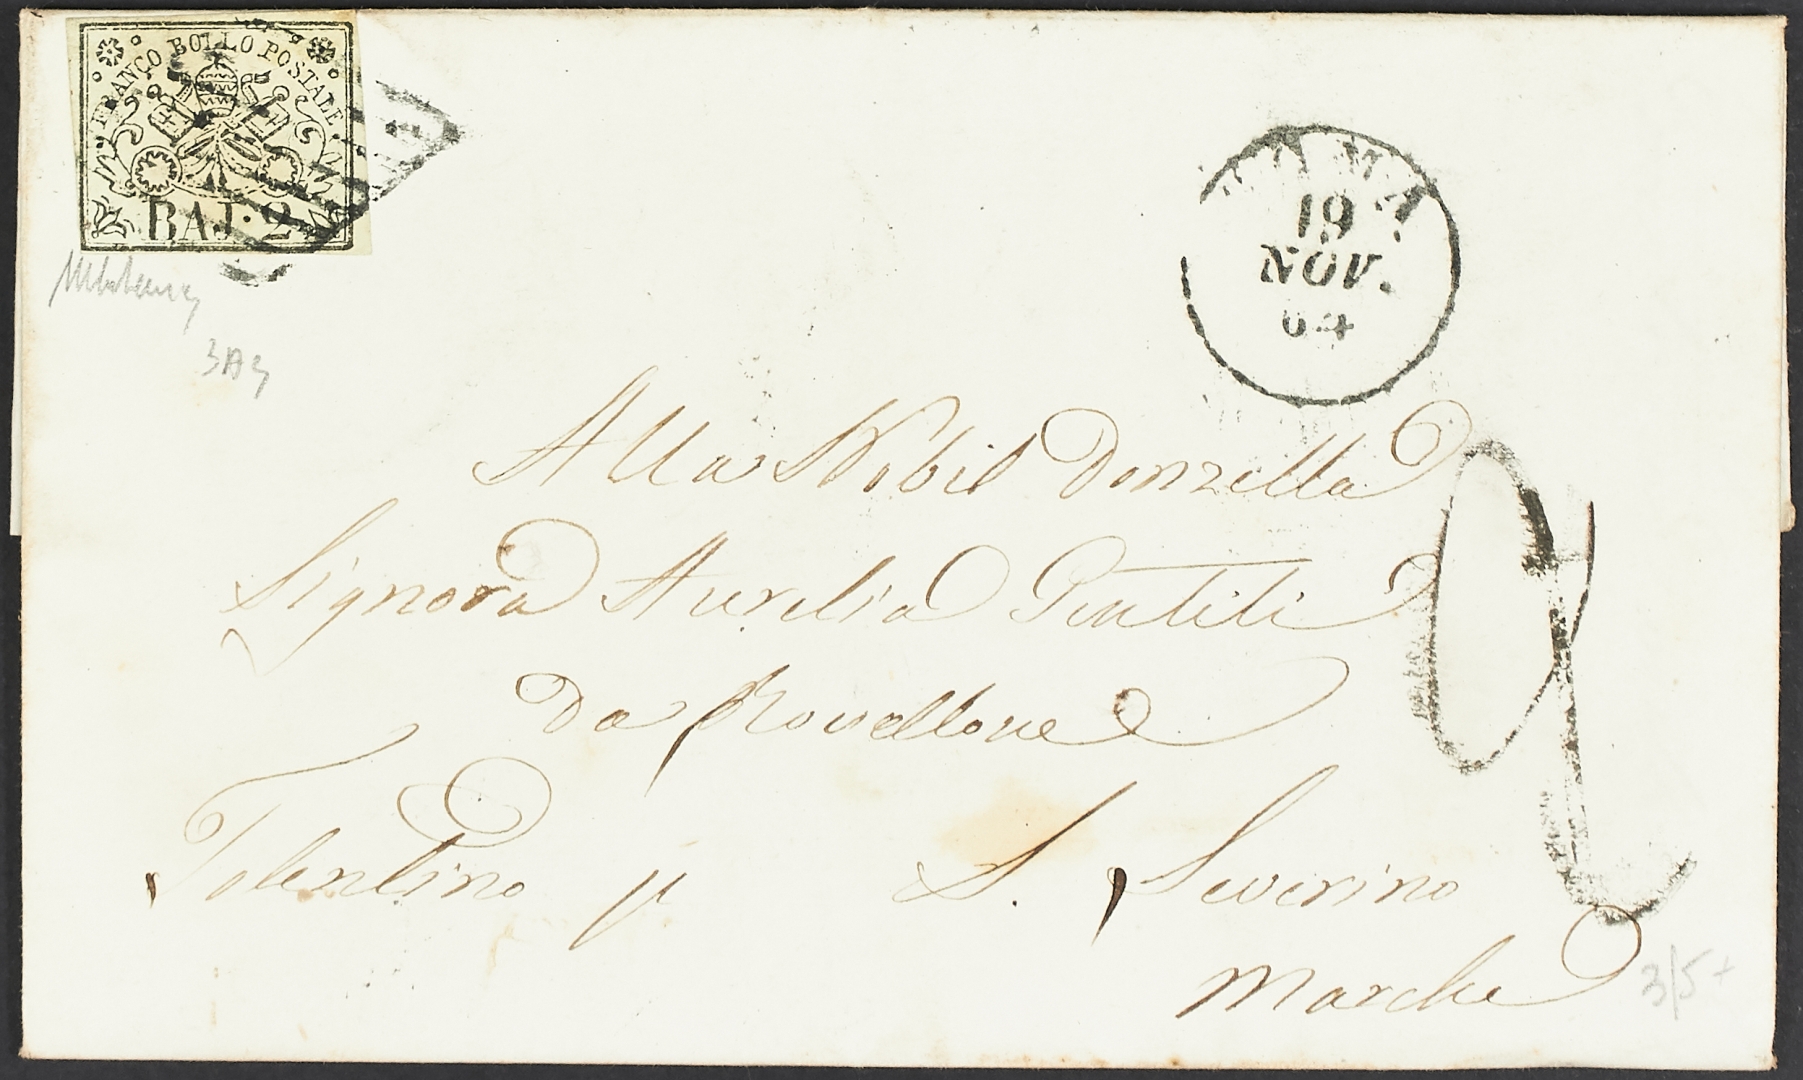 FRANCO BOLLO POSTALE
BAJ. 2
ROMA
19
NOV.
64
3/5+
Alla Nobil Donzella
Signora Aurelia Gentili
Da Rovellone
Tolentino p S. Severino
Marche